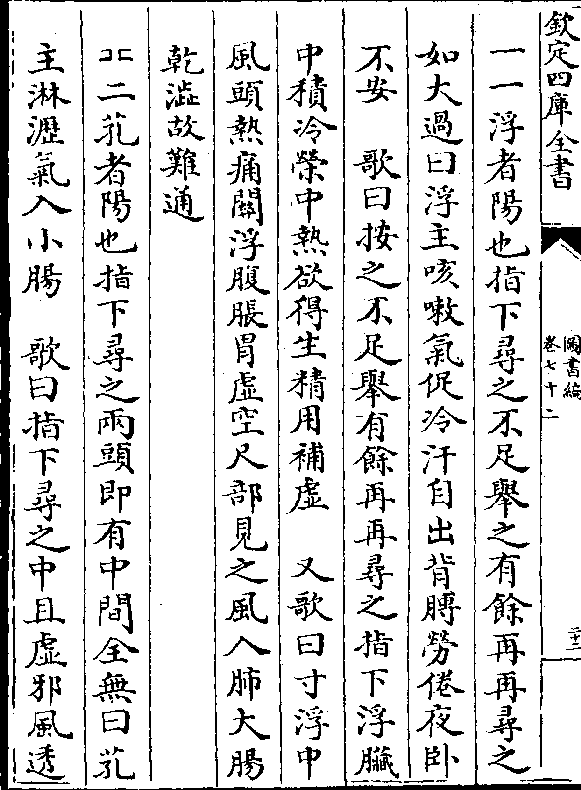 欽定四庫全書
圖書編
卷七十二
二十三
一一浮者陽也指下尋之不足舉之有餘再再尋之
如大過曰浮主咳嗽氣促冷汗自出背膊勞倦夜卧
不安　歌曰按之不足舉有餘再再尋之指下浮臟
中積冷榮中熱欲得生精用補虛　又歌曰寸浮中
風頭熱痛關浮腹脹胃虛空尺部見之風入肺大腸
乾澁故難通
二芤者陽也指下尋之兩頭即有中間全無曰芤
主淋瀝氣入小腸　歌曰指下尋之中且虛邪風透